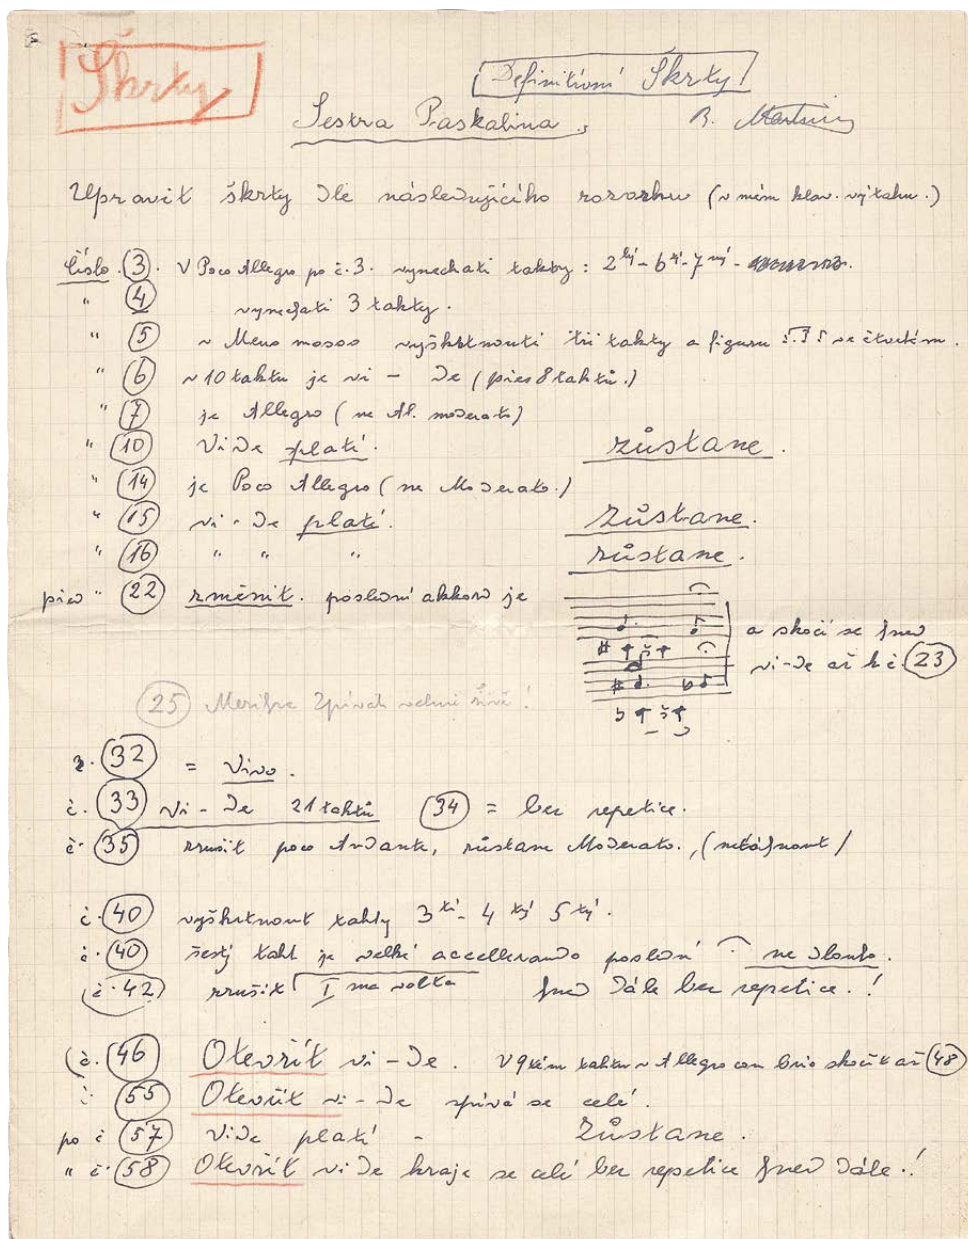 Škrty
Definitivní Škrty!
Sestra Paskalina. B. Martinů
Upravit škrty dle následujícího rozvrhu (v mém klav. výtahu.)
číslo. 3. V Poco Allegro po č. 3. vynechati takty: 2hý - 6tý - 7mý -
" 4 vynechati 3 takty.
" 5 v Meno mosso vyškrtnouti tři takty a figuru ve čtvrtém.
" 6 v 10 taktu je vi - de (přes 8 taktů.)
" 7 je Allegro (ne Al. moderato)
" 10 Vide platí. zůstane.
" 14 je Poco Allegro (ne Moderato.)
" 15 vi - de platí. Zůstane.
" 16 " " " zůstane.
před " 22 změnit. poslední akkord je
a skočí se hned
vi-de až k č 23
25 zpívat velmi
32 = Vivo.
č. 33 vi - de 21 taktů 34 = bez repetice.
č. 35 zrušit poco Andante, zůstane Moderato., (netáhnout)
č. 40 vyškrtnout takty 3tí - 4tý 5tý.
č. 40 šestý takt je velké accellerando poslední ne dlouho.
(č. 42) zrušit I ma volta hned dále bez repetice.!
(č. 46 Otevřít vi - de. V 9tém taktu v Allegro con brio skočit až 48
č 55 Otevřít vi - de zpívá se celé.
po č 57 Vide platí - Zůstane.
" č. 58 Otevřít vi de hraje se celé bez repetice hned dále.!